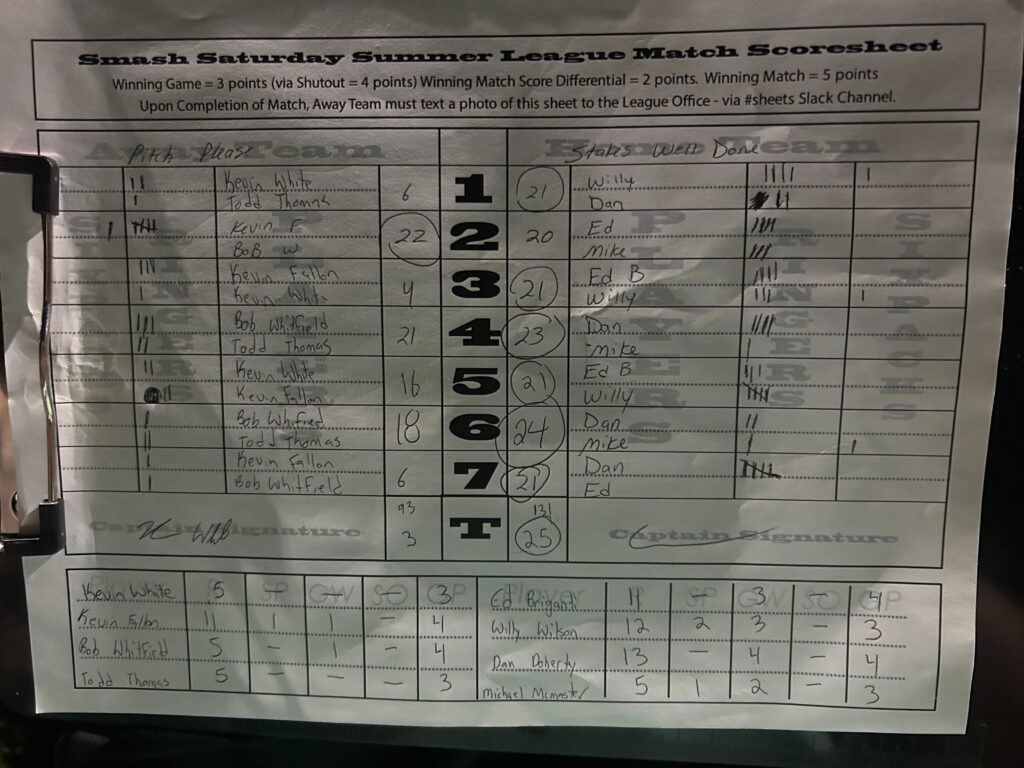 Smash Saturday Summer League Match Scoresheet
Winning Game = 3 points (via Shutout = 4 points) Winning Match Score Differential = 2 points. Winning Match = 5 points
Upon Completion of Match, Away Team must text a photo of this sheet to the League Office - via #sheets Slack Channel.
Away Team Pitch Please Home Team Stakes Well Done
Kevin White 6 1 21 Willy
Todd Thomas Dan
Kevin F 22 2 20 Ed
Bob W Mike
Kevin Fallon 4 3 21 Ed B
Kevin White Willy
Bob Whitfield 21 4 23 Dan
Todd Thomas Mike
Kevin White 16 5 21 Ed B
Kevin Fallon Willy
Bob Whitfied 18 6 24 Dan
Todd Thomas Mike
Kevin Fallon 6 7 21 Dan
Bob Whitfield Ed
93 131
Captain Signature 3 T 25 Captain Signature
Player P SP GW SO GP Player P SP GW SO GP
Kevin White 5 — — — 3 Ed Briganti 11 — 3 — 4
Kevin Fallon 11 1 1 — 4 Willy Wilson 12 2 3 — 3
Bob Whitfield 5 — 1 — 4 Dan Doherty 13 — 4 — 4
Todd Thomas 5 — — — 3 Michael McMaster 5 1 2 — 3